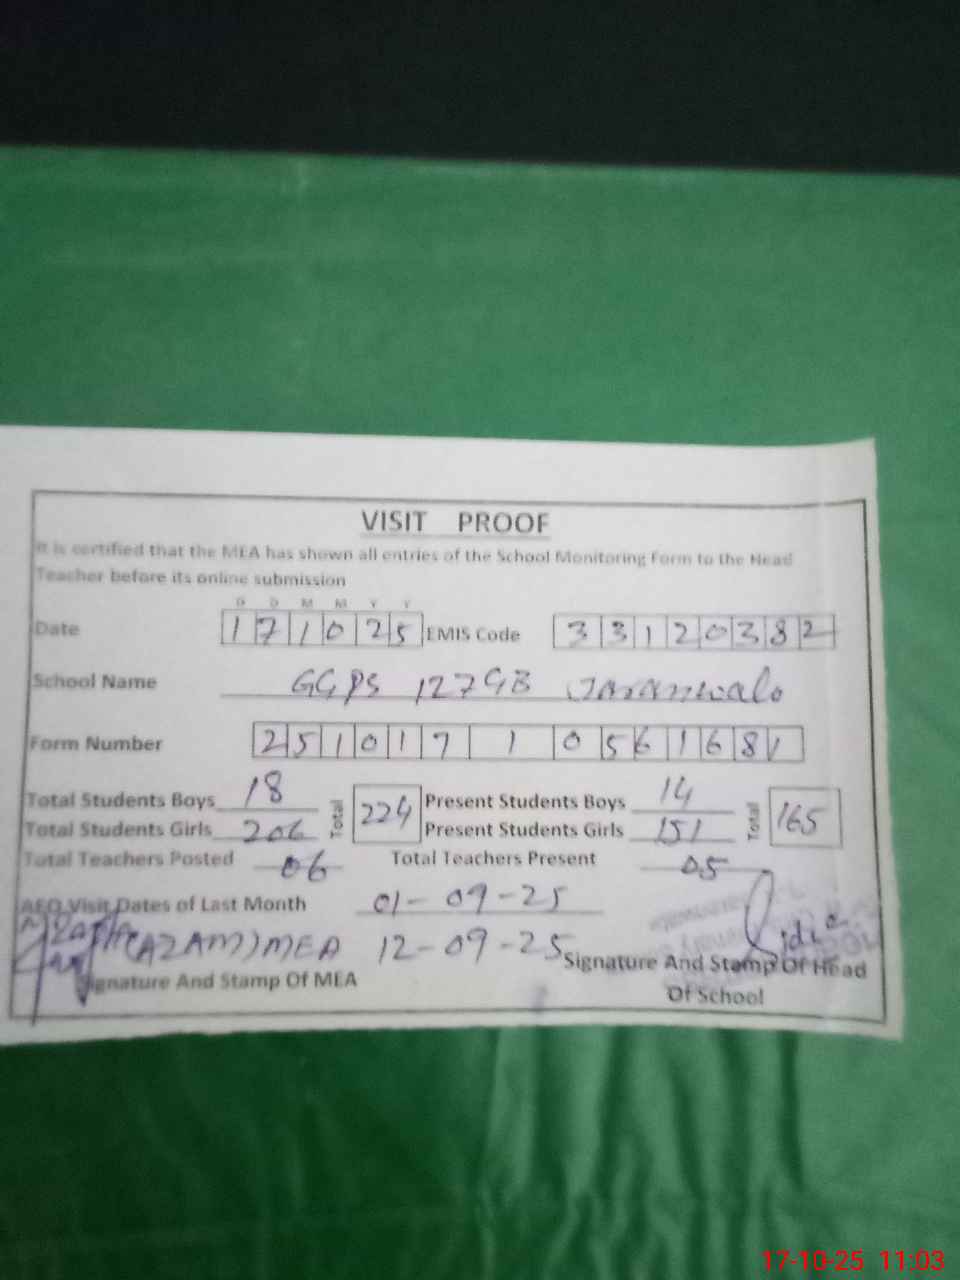 VISIT PROOF
It is certified that the MEA has shown all entries of the School Monitoring Form to the Head
Teacher before its online submission
D D M M Y Y
Date 171025 EMIS Code 33120382
School Name GGPS 127GB Jaranwala
Form Number 25101710561681
Total Students Boys 18 Total 224 Present Students Boys 14 Total 165
Total Students Girls 206 Present Students Girls 151
Total Teachers Posted 06 Total Teachers Present 05
AEO Visit Dates of Last Month 01-09-25
(AZAM) MEA 12-09-25
Signature And Stamp Of MEA Signature And Stamp Of Head
Of School
17-10-25 11:03